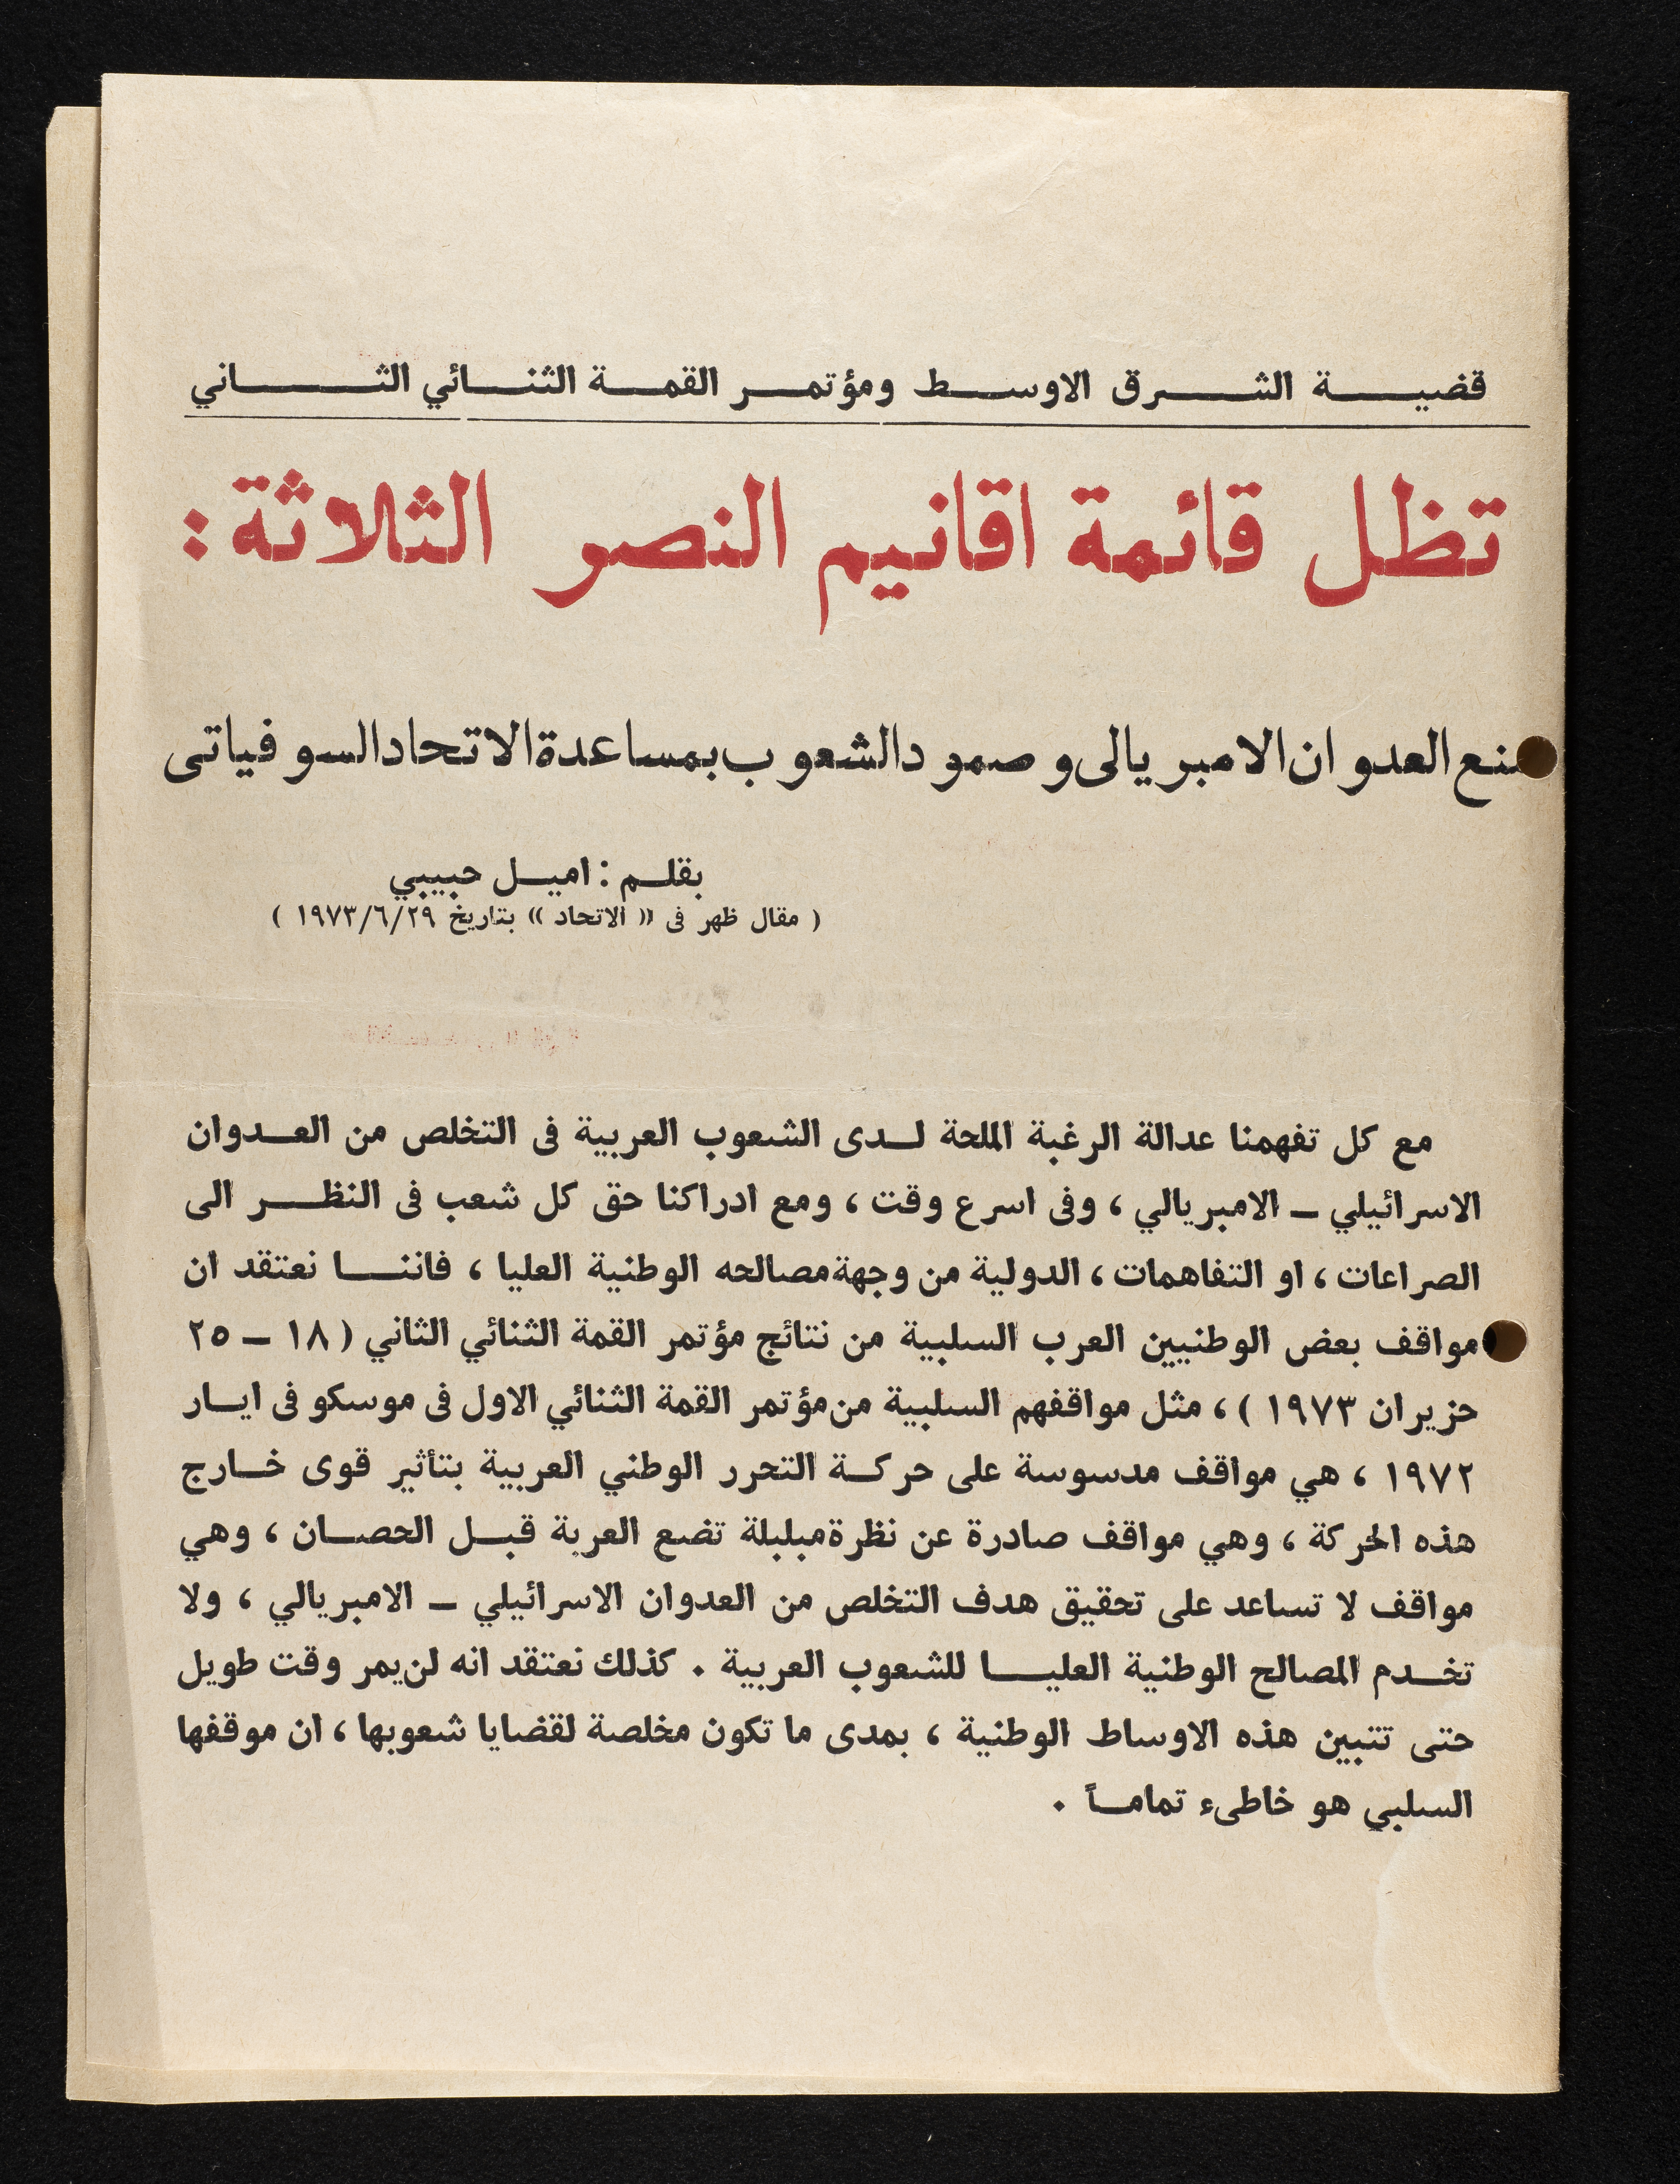 قضية الشرق الاوسط ومؤتمر القمة الثنائي الثاني
تظل قائمة اقانيم النصر الثلاثة :
منع العدوان الامبريالى وصمود الشعوب بمساعدة الاتحاد السوفياتى
بقلم : اميل حبيبي
( مقال ظهر فى « الاتحاد » بتاريخ ١٩٧٣/٦/٢٩ )
مع كل تفهمنا عدالة الرغبة الملحة لدى الشعوب العربية فى التخلص من العدوان
الاسرائيلي ـ الامبريالي ، وفى اسرع وقت ، ومع ادراكنا حق كل شعب فى النظر الى
الصراعات ، او التفاهمات ، الدولية من وجهة مصالحه الوطنية العليا ، فاننا نعتقد ان
مواقف بعض الوطنيين العرب السلبية من نتائج مؤتمر القمة الثنائي الثاني ( ١٨ ـ ٢٥
حزيران ١٩٧٣ ) ، مثل مواقفهم السلبية من مؤتمر القمة الثنائي الاول فى موسكو فى ايار
١٩٧٢ ، هي مواقف مدسوسة على حركة التحرر الوطني العربية بتأثير قوى خارج
هذه الحركة ، وهي مواقف صادرة عن نظرة مبلبلة تضع العربة قبل الحصان ، وهي
مواقف لا تساعد على تحقيق هدف التخلص من العدوان الاسرائيلي ـ الامبريالي ، ولا
تخدم المصالح الوطنية العليا للشعوب العربية . كذلك نعتقد انه لن يمر وقت طويل
حتى تتبين هذه الاوساط الوطنية ، بمدى ما تكون مخلصة لقضايا شعوبها ، ان موقفها
السلبي هو خاطىء تماماً .